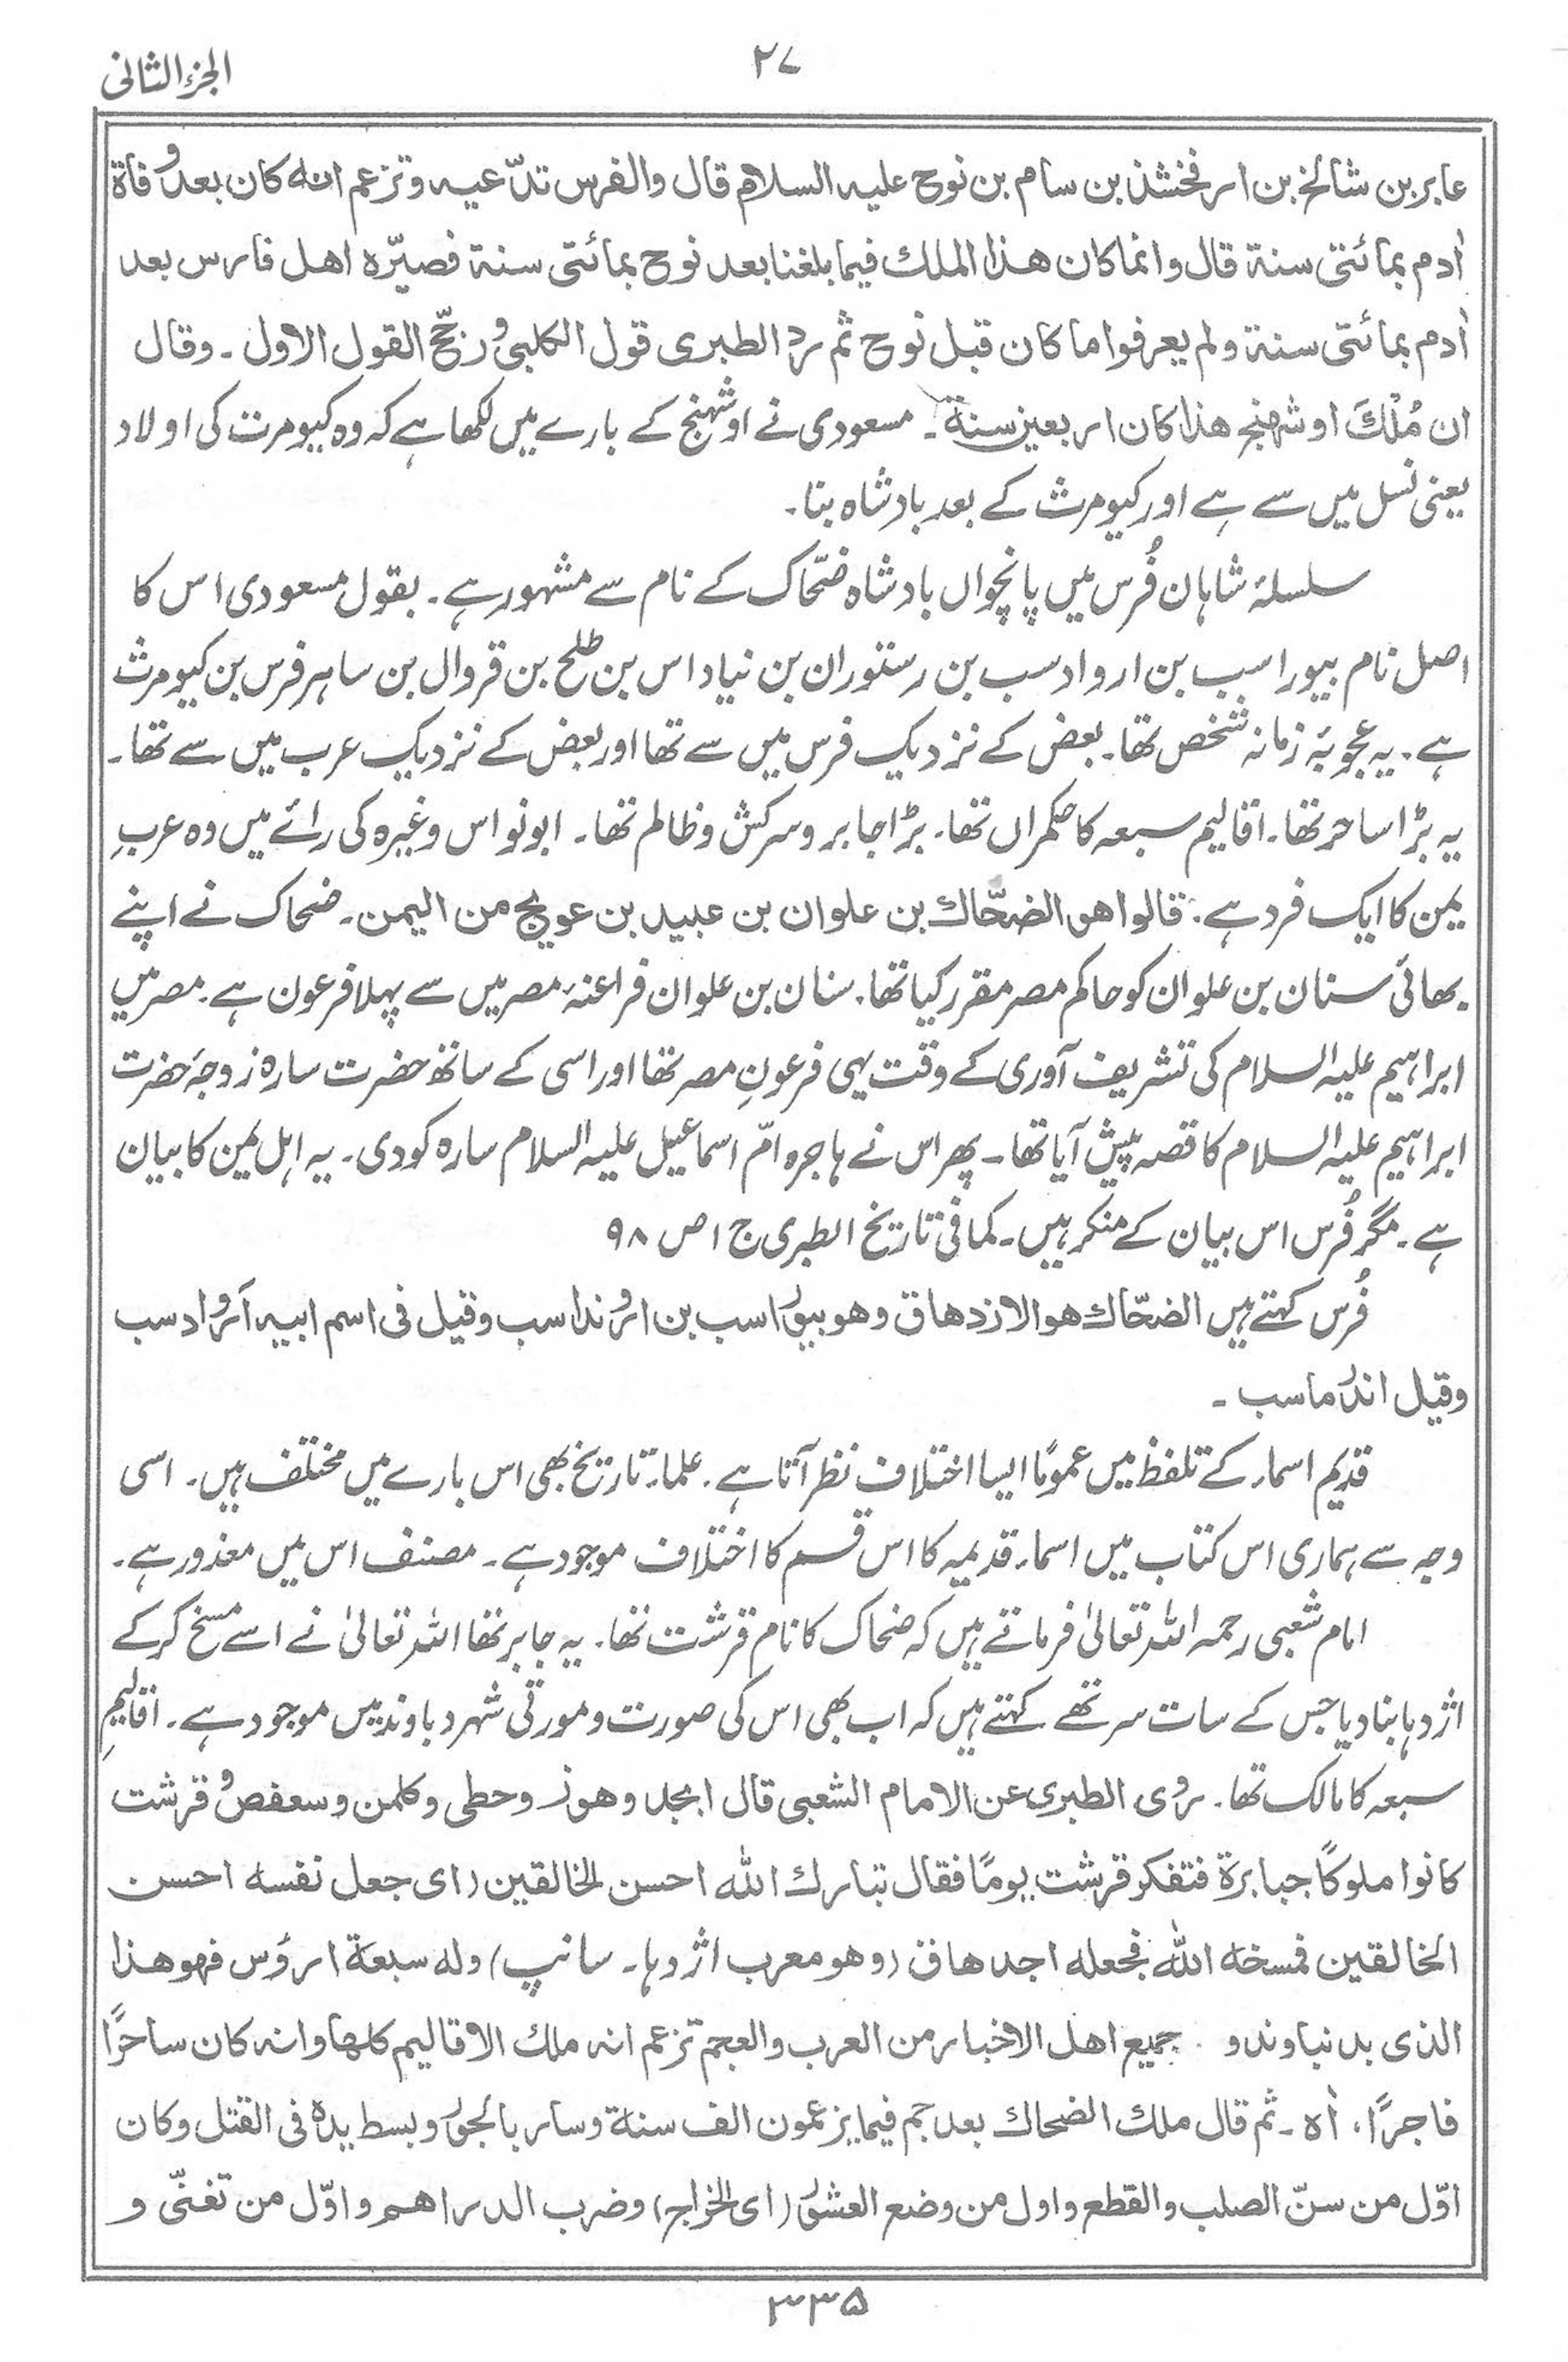 الجزء الثانی
۲۷
عابر بن شالخ بن ارفخشذ بن سام بن نوح علیہ السلام قال والفرس تدّعیہ وتزعم انہ کان بعد وفاۃ
اٰدم بمائتی سنۃ قال وانما کان ھذا الملک فیما بلغنا بعد نوح بمائتی سنۃ فصیّرہ اھل فارس بعد
اٰدم بمائتی سنۃ ولم یعرفوا ما کان قبل نوح ثم ردّ الطبری قول الکلبی ورجّح القول الاول ۔ وقال
ان مُلْکَ اوشھنج ھذا کان اربعین سنۃ ۔ مسعودی نے اوشہنج کے بارے میں لکھا ہے کہ وہ کیومرت کی اولاد
یعنی نسل میں سے ہے اور کیومرث کے بعد بادشاہ بنا ۔
سلسلۂ شاہان فُرس میں پانچواں بادشاہ ضحّاک کے نام سے مشہور ہے ۔ بقول مسعودی اس کا
اصل نام بیوراسب بن اروادسب بن رستوران بن نیاداس بن طلح بن قروال بن ساہر فرس بن کیومرث
ہے ۔ یہ عجوبۂ زمانہ شخص تھا ۔ بعض کے نزدیک فرس میں سے تھا اور بعض کے نزدیک عرب میں سے تھا ۔
یہ بڑا ساحر تھا ۔ اقالیم سبعہ کا حکمراں تھا ۔ بڑا جابر و سرکش و ظالم تھا ۔ ابونواس وغیرہ کی رائے میں وہ عربِ
یمن کا ایک فرد ہے ۔ قالوا ھو الضحّاک بن علوان بن عبید بن عویج من الیمن ۔ ضحاک نے اپنے
بھائی سنان بن علوان کو حاکم مصر مقرر کیا تھا ۔ سنان بن علوان فراعنۂ مصر میں سے پہلا فرعون ہے ۔ مصر میں
ابراہیم علیہ السلام کی تشریف آوری کے وقت یہی فرعونِ مصر تھا اور اسی کے ساتھ حضرت سارہ زوجۂ حضرت
ابراہیم علیہ السلام کا قصہ پیش آیا تھا ۔ پھر اس نے ہاجرہ امّ اسماعیل علیہ السلام سارہ کو دی ۔ یہ اہل یمن کا بیان
ہے ۔ مگر فُرس اس بیان کے منکر ہیں ۔ کما فی تاریخ الطبری ج ۱ ص ۹۸
فُرس کہتے ہیں الضحّاک ھو الازدھاق وھو بیوراسب بن ارونداسب وقیل فی اسم ابیہ اَروادسب
وقیل اندرماسب ۔
قدیم اسماء کے تلفظ میں عمومًا ایسا اختلاف نظر آتا ہے ۔ علماء تاریخ بھی اس بارے میں مختلف ہیں ۔ اسی
وجہ سے ہماری اس کتاب میں اسماء قدیمہ کا اس قسم کا اختلاف موجود ہے ۔ مصنف اس میں معذور ہے ۔
امام شعبی رحمہ اللہ تعالیٰ فرماتے ہیں کہ ضحاک کا نام قرشت تھا ۔ یہ جابر تھا اللہ تعالیٰ نے اسے مسخ کرکے
اژدہا بنا دیا جس کے سات سر تھے کہتے ہیں کہ اب بھی اس کی صورت و مورتی شہر دباوند میں موجود ہے ۔ اقالیمِ
سبعہ کا مالک تھا ۔ روی الطبری عن الامام الشعبی قال ابجد وھوز وحطی وکلمن وسعفص وقرشت
کانوا ملوکًا جبابرۃ فتفکر قرشت یومًا فقال تبارک اللہ احسن الخالقین (ای جعل نفسہ احسن
الخالقین فمسخہ اللہ فجعلہ اجدھاق (وھو معرب اژدہا ۔ سانپ) ولہ سبعۃ ارؤس فھو ھذا
الذی بدنباوند و جمیع اھل الاخبار من العرب والعجم تزعم انہ ملک الاقالیم کلھا وانہ کان ساحرًا
فاجرًا، اٰہ ۔ ثم قال ملک الضحاک بعد جم فیما یزعمون الف سنۃ وسار بالجور وبسط یدہ فی القتل وکان
اوّل من سنّ الصلب والقطع واول من وضع العشور (ای الخراج) وضرب الدراھم واوّل من تغنّی و
۳۳۵